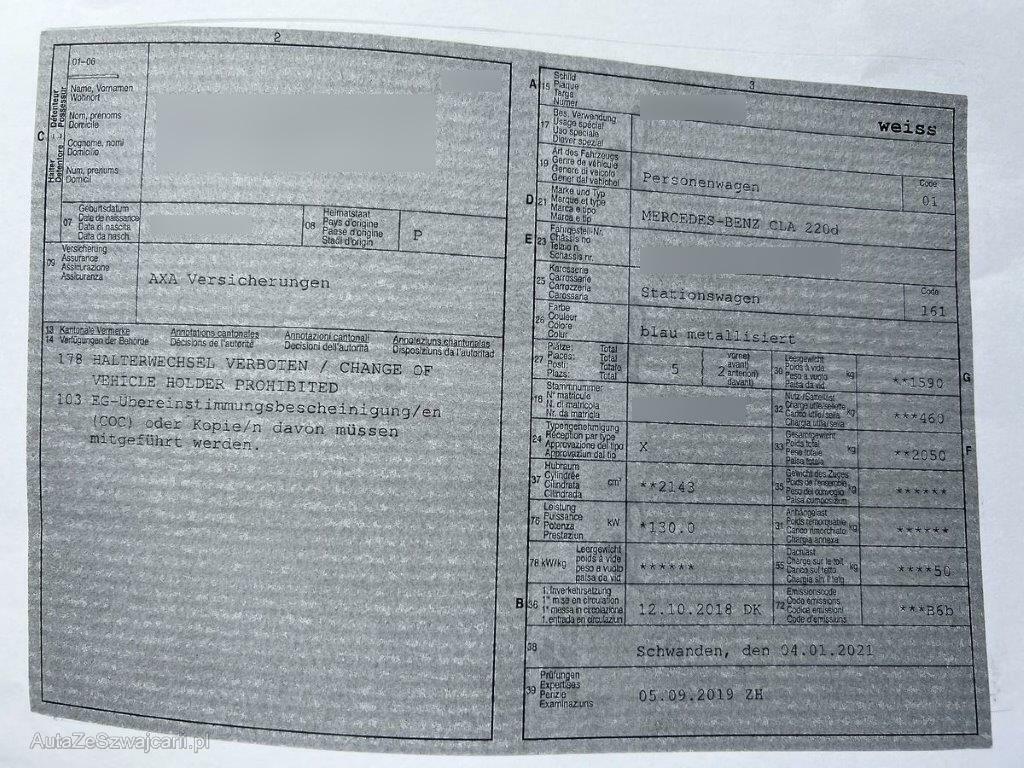 2
01-06
Halter Détenteur
Detentore Possessur
Name, Vornamen
Wohnort
Nom, prénoms
Domicile
Cognome, nomi
Domicilio
Num, prenums
Domicil
C
07
Geburtsdatum
Date de naissance
Data di nascita
Data da nasch.
08
Heimatstaat
Pays d'origine
Paese d'origine
Stadi d'origin
P
09
Versicherung
Assurance
Assicurazione
Assicuranza
AXA Versicherungen
13 Kantonale Vermerke Annotations cantonales Annotazioni cantonali Annotaziuns chantunalas
14 Verfügungen der Behörde Décisions de l'autorité Decisioni dell'autorità Disposiziuns da l'autoritad
178 HALTERWECHSEL VERBOTEN / CHANGE OF
VEHICLE HOLDER PROHIBITED
103 EG-Übereinstimmungsbescheinigung/en
(COC) oder Kopie/n davon müssen
mitgeführt werden.
3
A 15
Schild
Plaque
Targa
Numer
weiss
17
Bes. Verwendung
Usage spécial
Uso speciale
Diever spezial
19
Art des Fahrzeugs
Genre de véhicule
Genere di veicolo
Gener dal vehichel
Personenwagen
Code
01
D 21
Marke und Typ
Marque et type
Marca e tipo
Marca e tip
MERCEDES-BENZ CLA 220d
E 23
Fahrgestell-Nr.
Châssis no
Telaio n.
Schassis nr.
25
Karosserie
Carrosserie
Carrozzeria
Carossaria
Stationswagen
Code
161
26
Farbe
Couleur
Colore
Colur
blau metallisiert
27
Plätze: Total
Places: Total
Posti: Totale
Plazs: Total
5
vorne)
avant)
2 anteriori)
davant)
30
Leergewicht
Poids à vide
Peso a vuoto
Paisa da vid
kg
**1590
G
18
Stammnummer
N° matricule
N. di matricola
Nr. da matricla
32
Nutz-/Sattellast
Charge utile/sellette
Carico utile/sella
Chargia utila/sella
kg
***460
24
Typengenehmigung
Réception par type
Approvazione del tipo
Approvaziun dal tip
X
33
Gesamtgewicht
Poids total
Peso totale
Paisa totala
kg
**2050
F
37
Hubraum
Cylindrée
Cilindrata
Cilindrada
cm³
**2143
35
Gewicht des Zuges
Poids de l'ensemble
Peso del convoglio
Paisa cumposiziun
kg
******
76
Leistung
Puissance
Potenza
Prestaziun
kW
*130.0
31
Anhängelast
Poids remorquable
Carico rimorchiato
Chargia annexa
kg
******
78 kW/kg
Leergewicht
poids à vide
peso a vuoto
paisa da vid
******
55
Dachlast
Charge sur le toit
Carico sul tetto
Chargia sin il tetg
kg
****50
B 36
1. Inverkehrsetzung
1re mise en circulation
1a messa in circolazione
1. entrada en circulaziun
12.10.2018 DK
72
Emissionscode
Code émissions
Codice emissioni
Code d'emissiuns
***B6b
38
Schwanden, den 04.01.2021
39
Prüfungen
Expertises
Perizie
Examinaziuns
05.09.2019 ZH
AutaZeSzwajcarii.pl